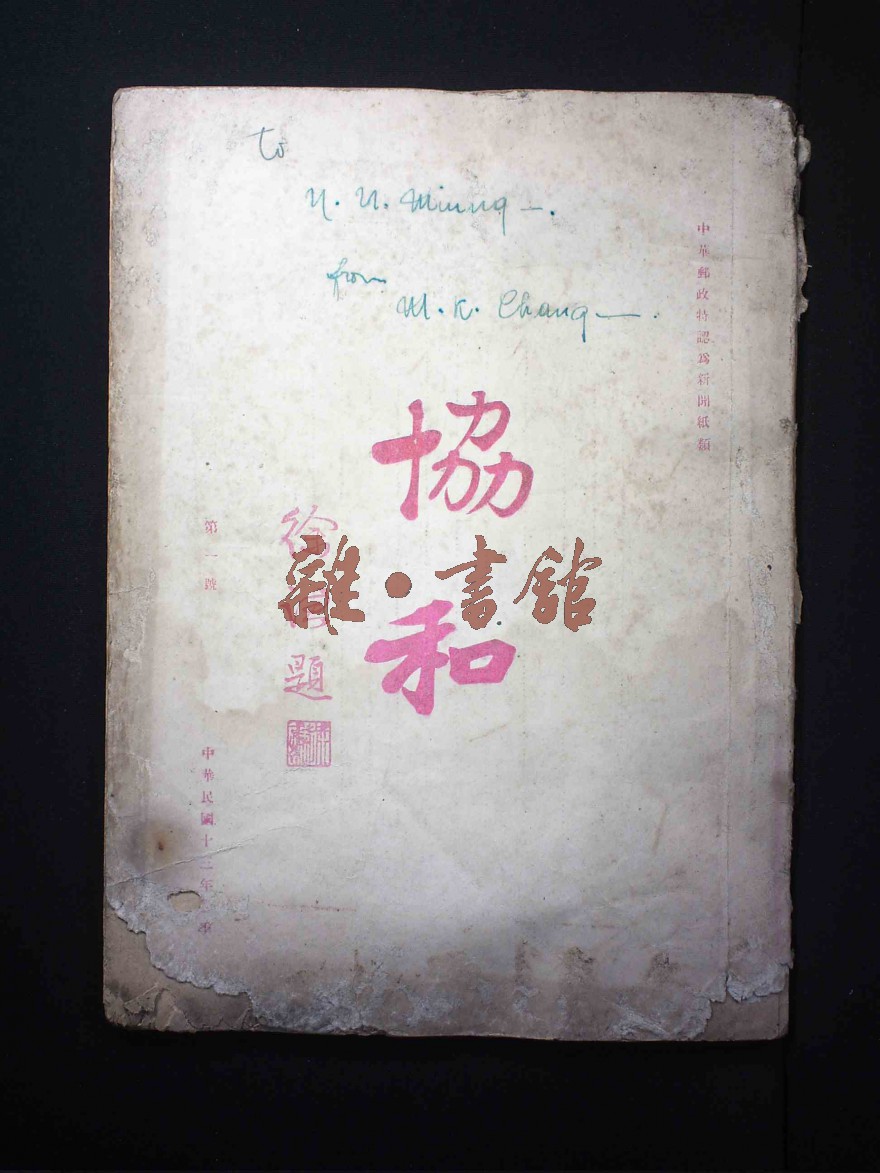 to
from
M. K. Chang
中華郵政特認爲新聞紙類
協和
徐
題
雜·書館
第一號
中華民國十二年